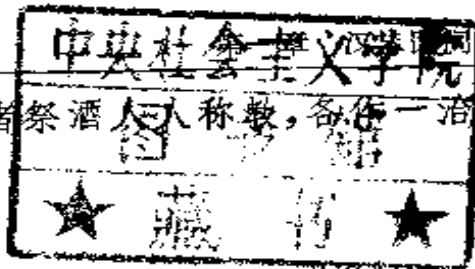 中央社会主义学院
者祭酒人人称教，各作一治
图书馆
★ 藏书 ★